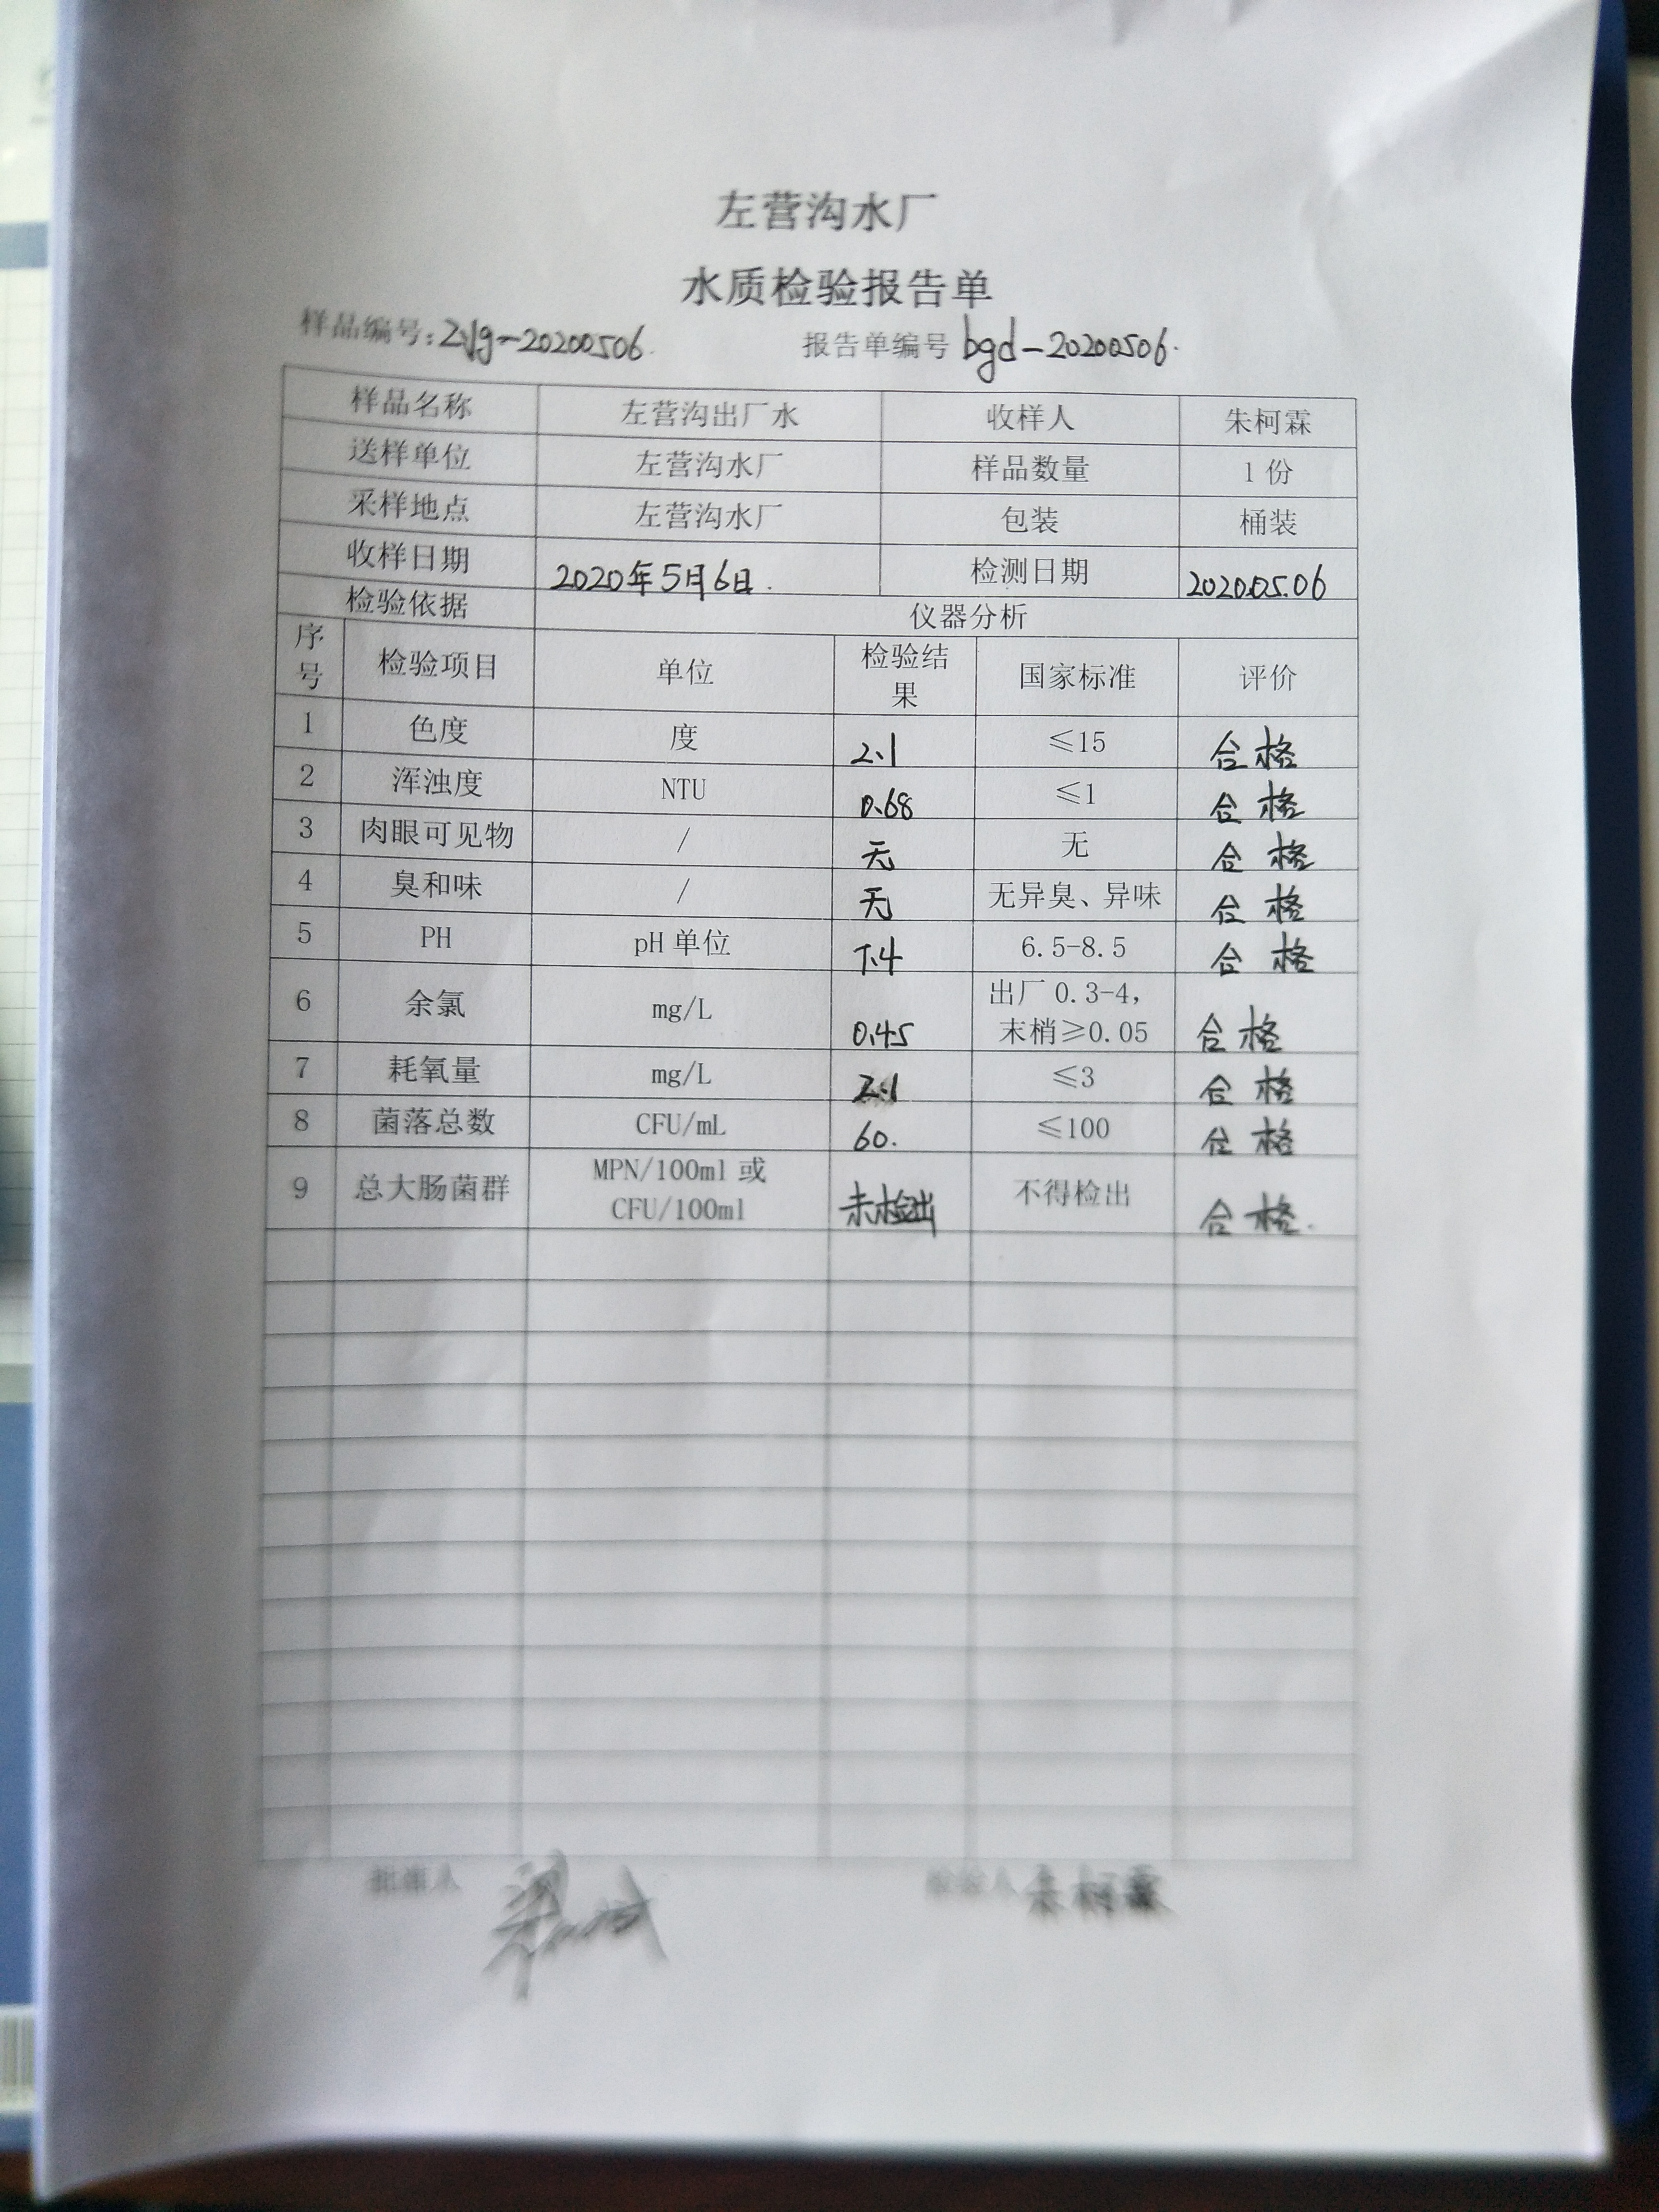 左营沟水厂
水质检验报告单
样品编号:zyg-20200506. 报告单编号 bgd-20200506.
样品名称 左营沟出厂水 收样人 朱柯霖
送样单位 左营沟水厂 样品数量 1份
采样地点 左营沟水厂 包装 桶装
收样日期 2020年5月6日. 检测日期 2020.05.06
检验依据 仪器分析
序号 检验项目 单位 检验结果 国家标准 评价
1 色度 度 2.1 ≤15 合格
2 浑浊度 NTU 0.68 ≤1 合格
3 肉眼可见物 / 无 无 合格
4 臭和味 / 无 无异臭、异味 合格
5 PH pH单位 7.4 6.5-8.5 合格
6 余氯 mg/L 0.45 出厂0.3-4,末梢≥0.05 合格
7 耗氧量 mg/L 2.1 ≤3 合格
8 菌落总数 CFU/mL 60. ≤100 合格
9 总大肠菌群 MPN/100ml或CFU/100ml 未检出 不得检出 合格.
批准人 检验人 朱柯霖